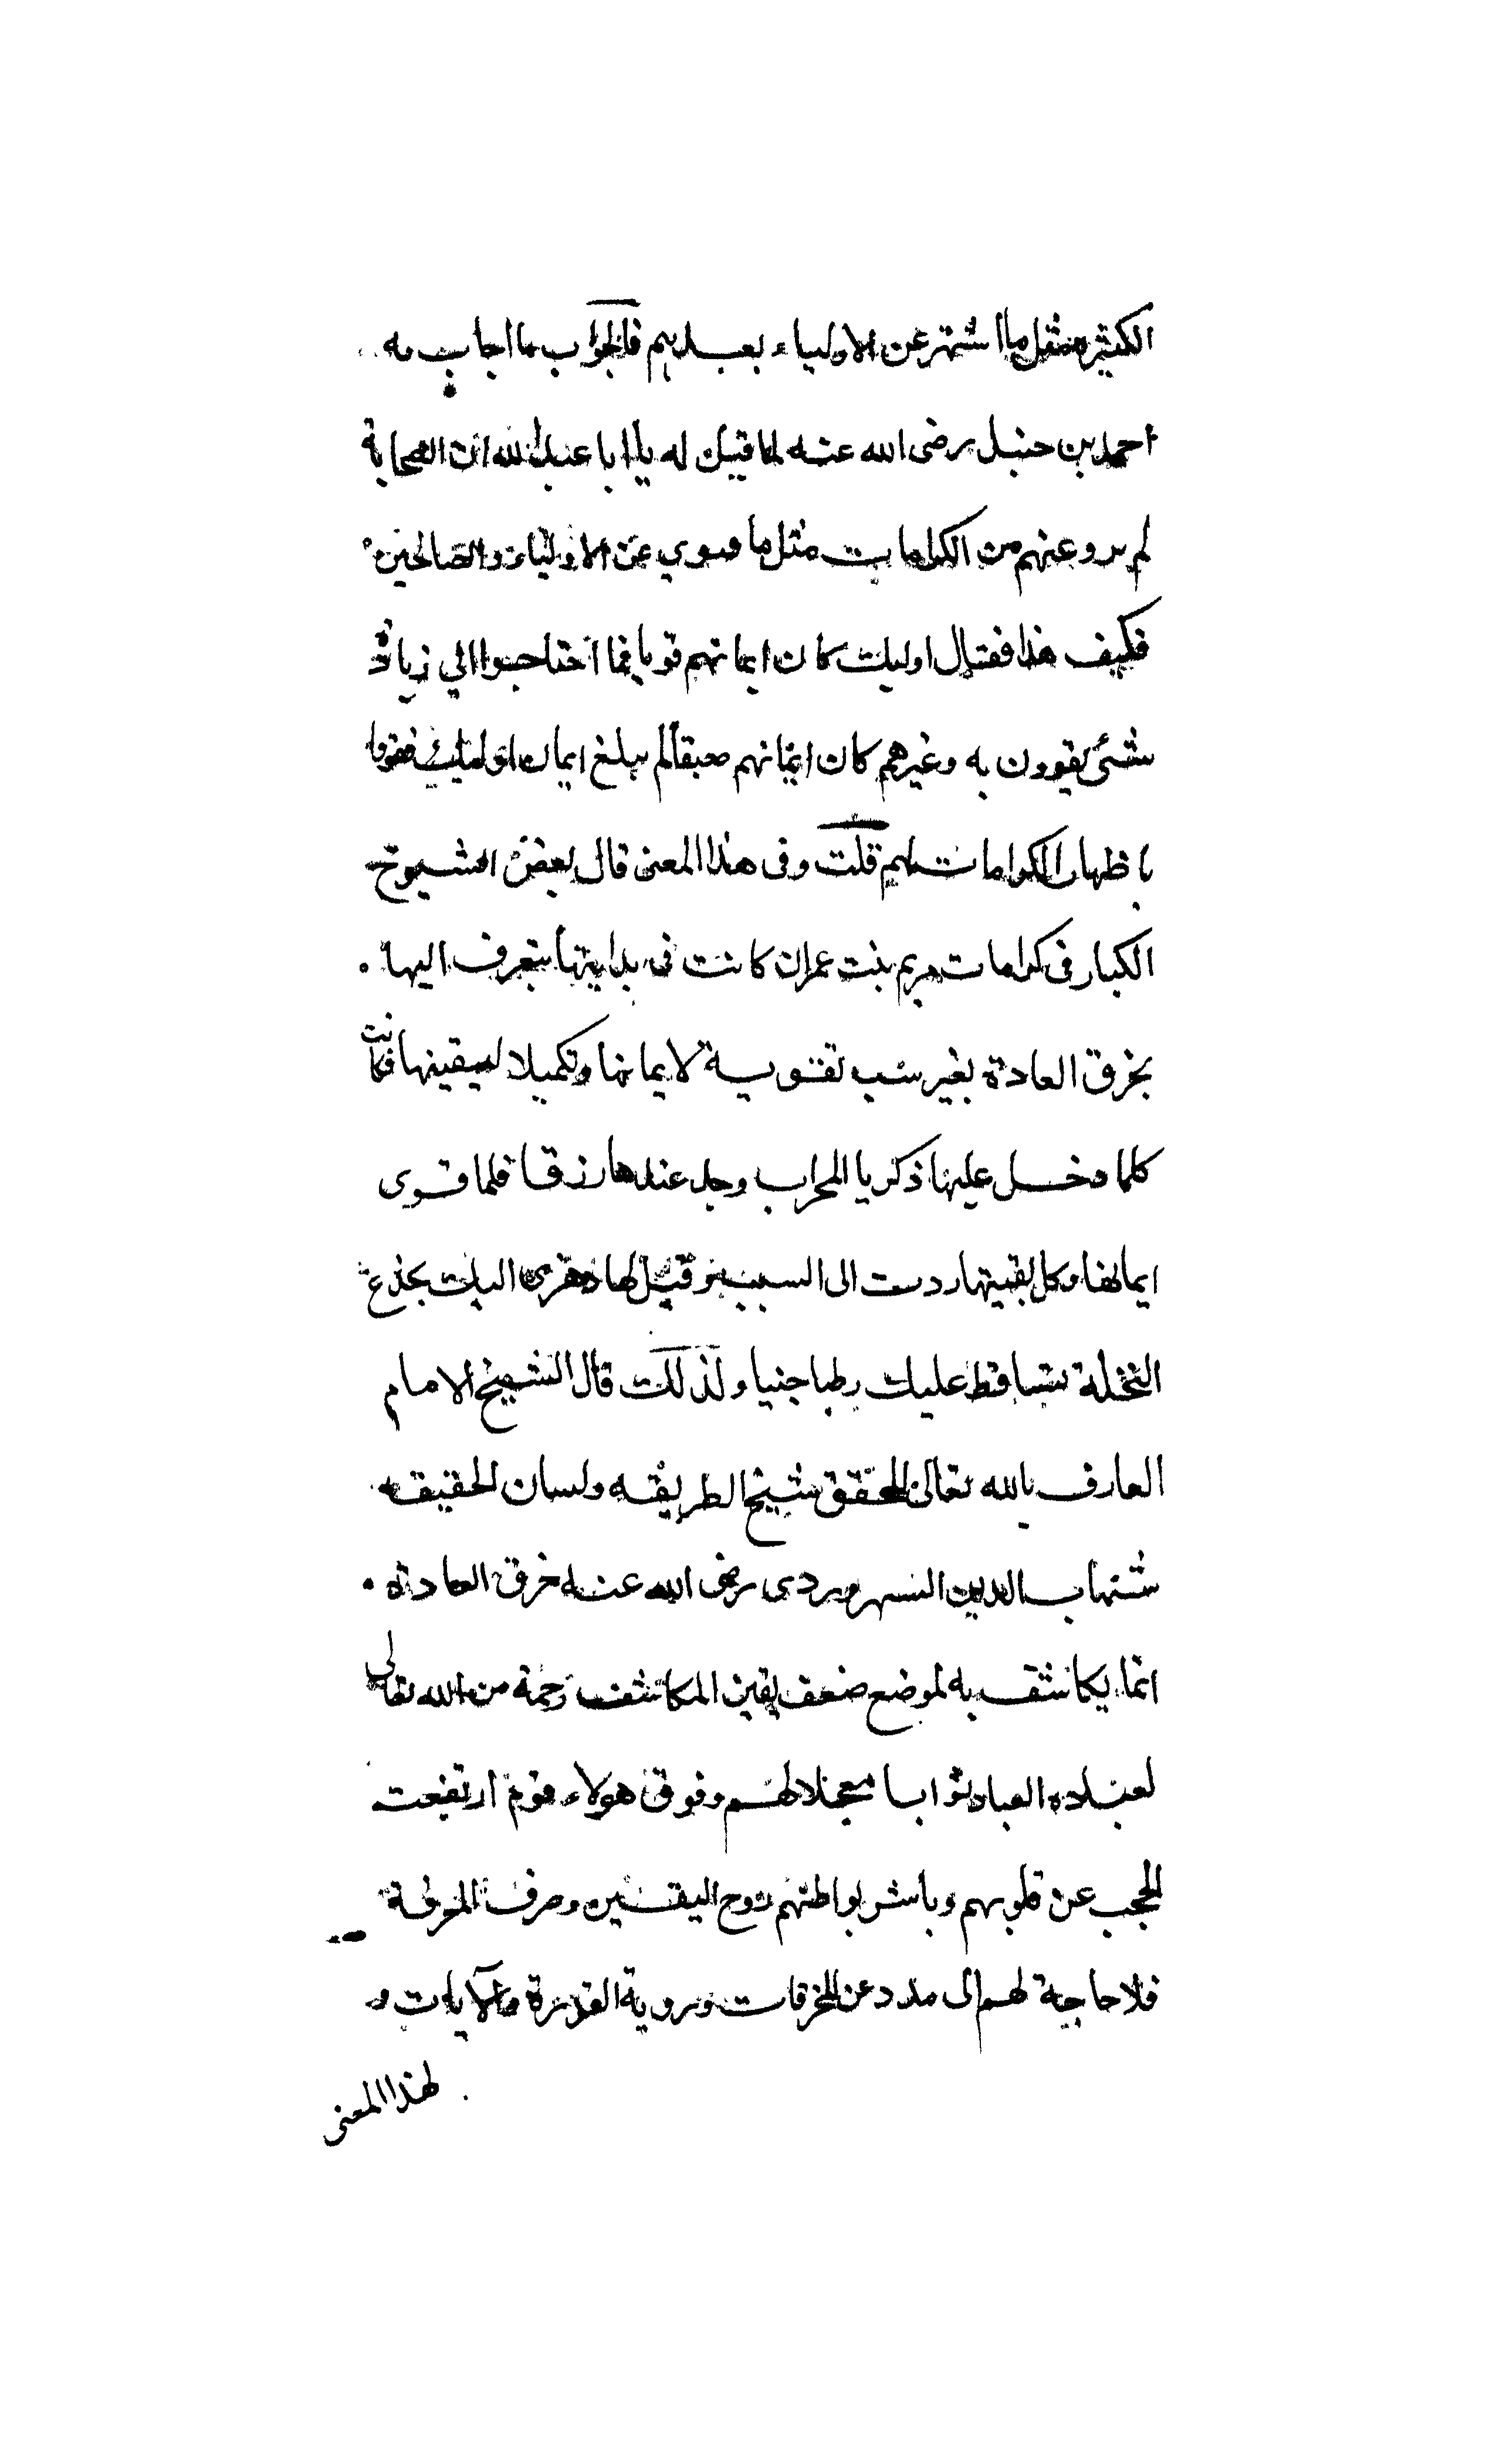 الكثير مثل ما اشتهر عن الاولياء بعدهم فالجواب ما اجاب به
احمد بن حنبل رضى الله عنه لما قيل له يا ابا عبد الله ان الصحابة
لم يرو عنهم من الكرامات مثل ما روي عن الاولياء والصالحين
فكيف هذا فقال اوليك كان ايمانهم قويا فما احتاجوا الي زيادة
شئ يقوون به وغيرهم كان ايمانهم ضعيفا لم يبلغ ايمان اوليك فقووا
باظهار الكرامات لهم قلت وفى هذا المعنى قال بعض الشيوخ
الكبار فى كرامات مريم بنت عمران كانت فى بدايتها يتعرف اليها
بخرق العادة بغير سبب تقوية لايمانها وتكميلا ليقينها فكانت
كلما دخل عليها زكريا المحراب وجد عندها رزقا فلما قوى
ايمانها وكمل يقينها ردت الى السبب وقيل لها وهزى اليك بجذع
النخلة تساقط عليك رطبا جنيا ولذلك قال الشيخ الامام
العارف بالله تعالى المحقق شيخ الطريقه ولسان الحقيقه
شهاب الدين السهروردى رضى الله عنه خرق العادة
انما يكاشف به لموضع ضعف يقين المكاشف رحمة من الله تعالى
لعباده العباد ثوابا معجلا لهم وفوق هولاء قوم ارتفعت
الحجب عن قلوبهم وباشر بواطنهم روح اليقين وصرف المعرفة
فلا حاجة لهم الى مدد عن الخرقات وروية القدرة والآيات و
لهذا المعنى